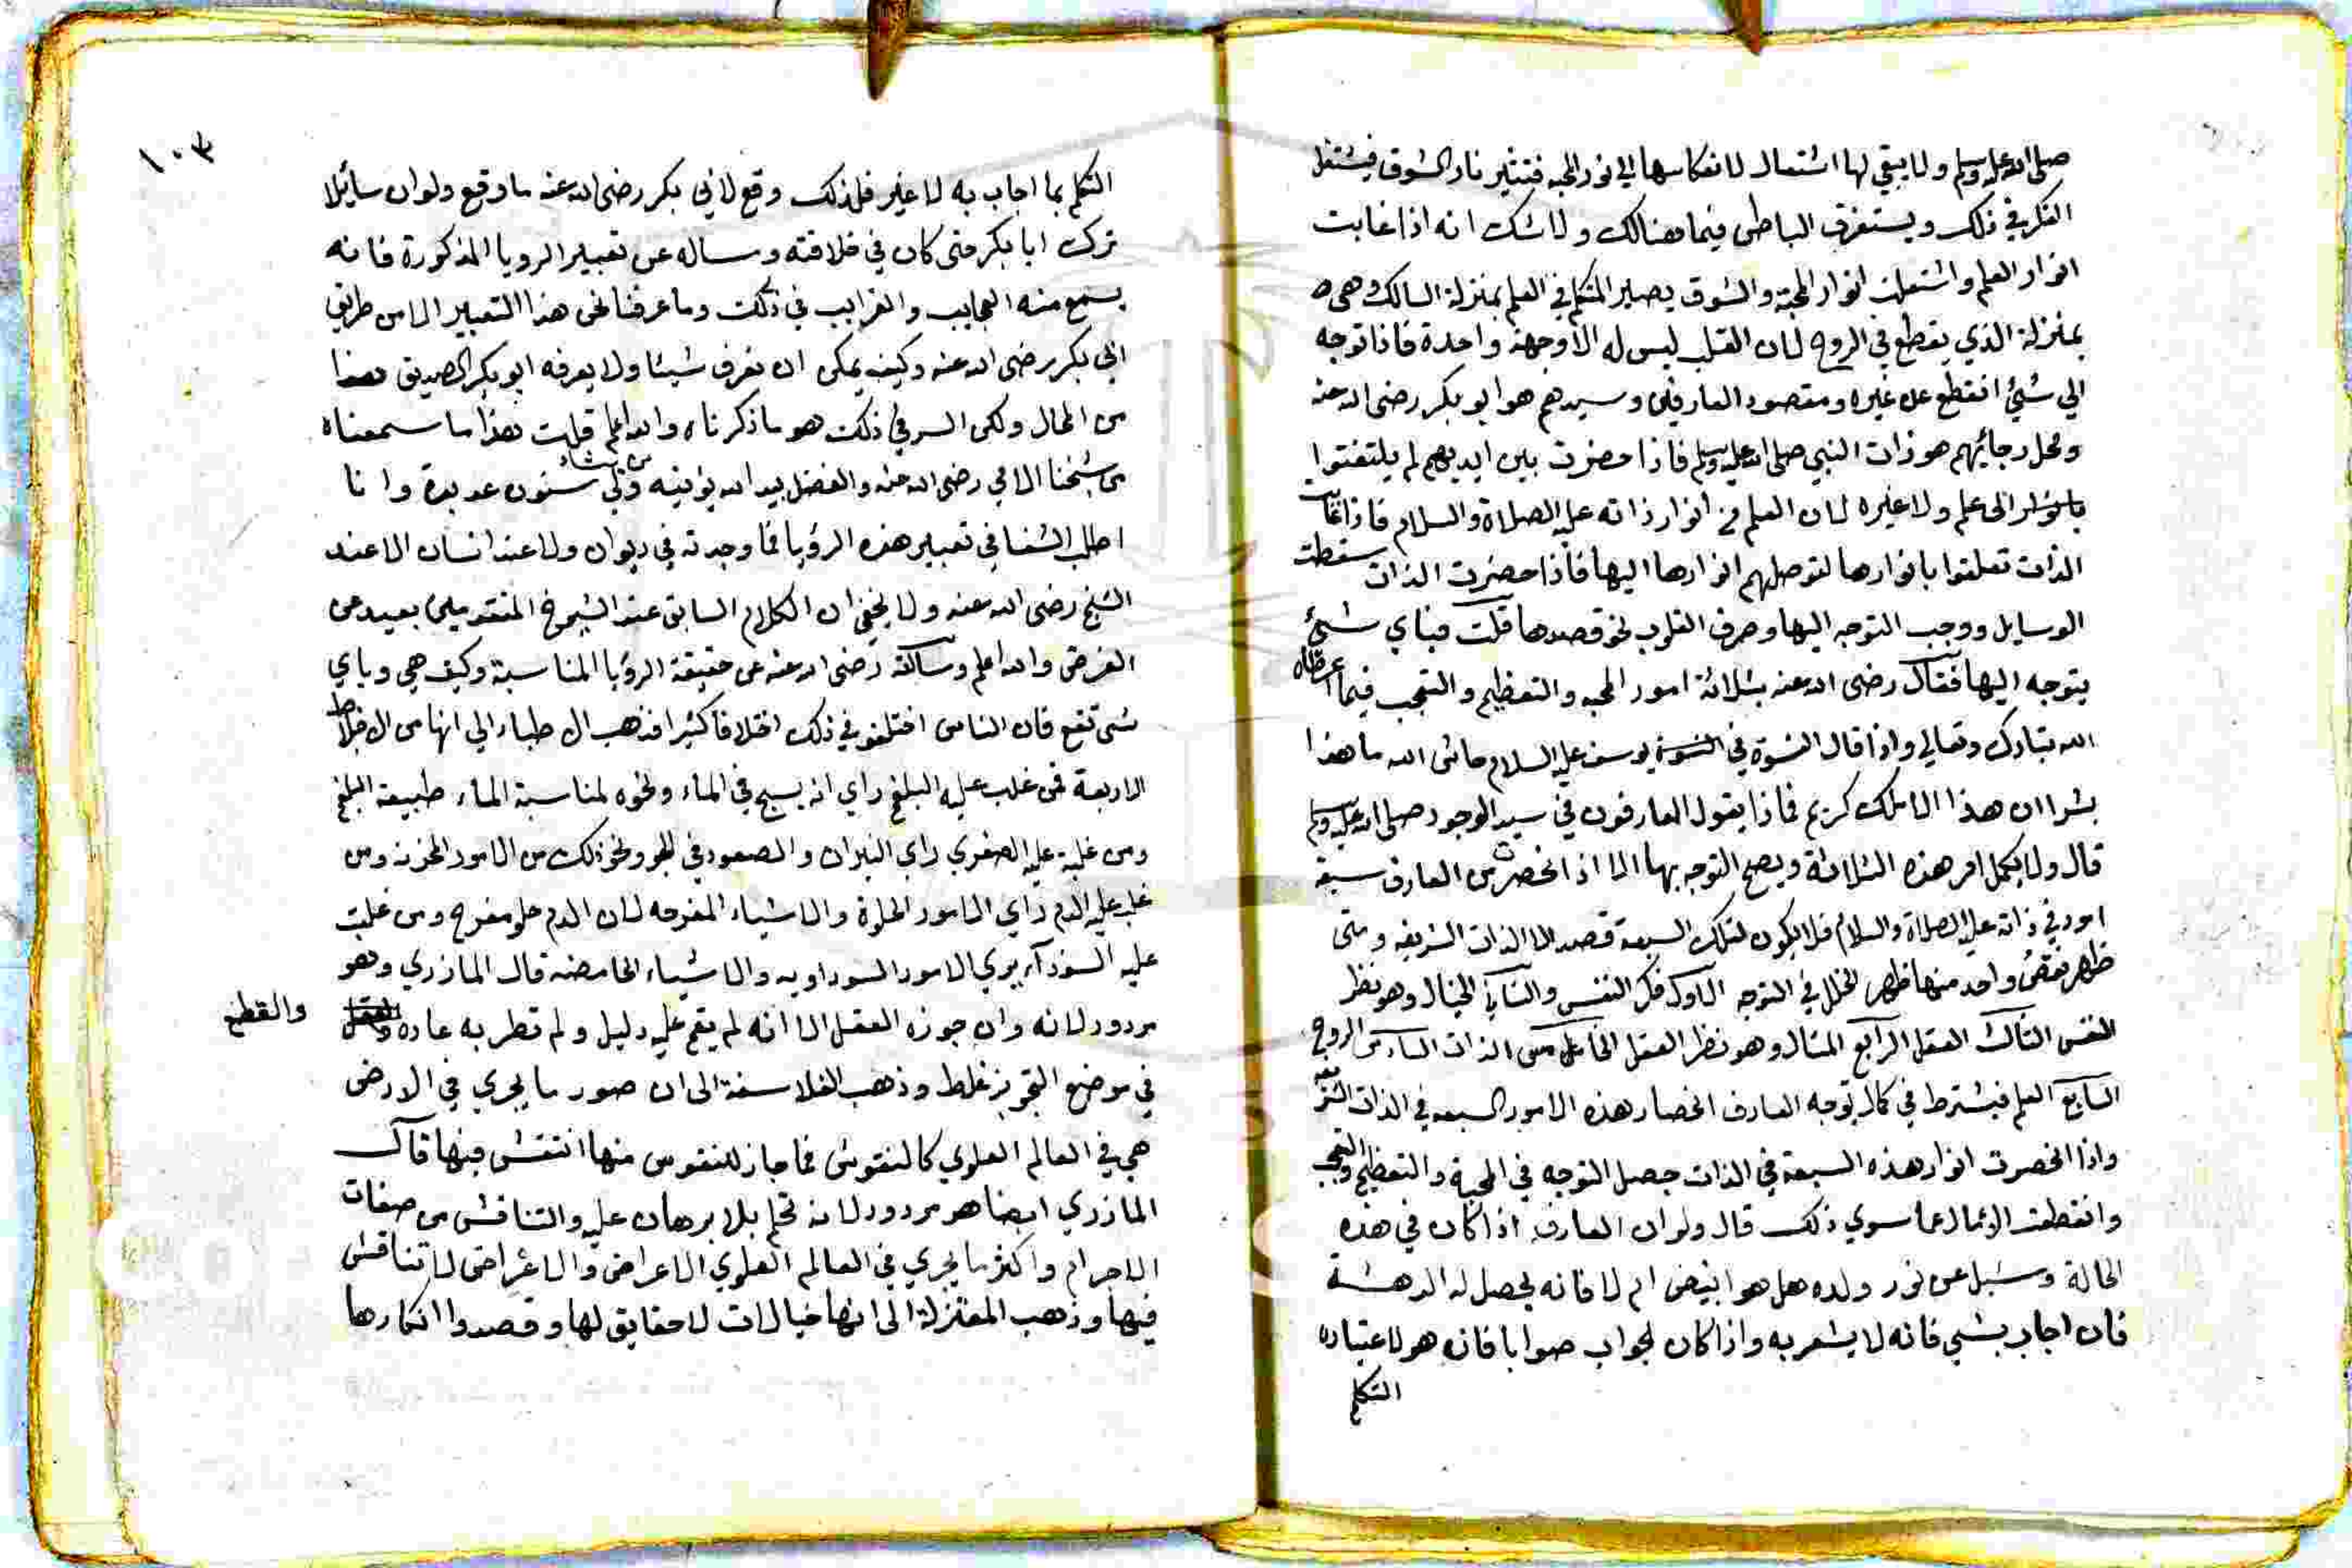 صلى الله عليه وسلم ولا يبقي لها اشتعال لانعكاسها الي نور المحبه فتثير نار الشوق فيشتغل
الفكر في ذلك ويستغرق الباطن فيما هنالك ولا شك انه اذا غابت
انوار العلم واشتعلت انوار المحبة والشوق يصير المتكلم في العلم بمنزلة السالك وهي
بمنزلة الذي يقطع في الروح لان القلب ليس له الا وجهة واحدة فاذا توجه
الي شئ انقطع عن غيره ومقصود العارفين وسيدهم هو ابو بكر رضى الله عنه
ومحل رجائهم هو ذات النبي صلى الله عليه وسلم فاذا حضرت بين ايديهم لم يلتفتوا
الى علم ولا غيره لان العلم من انوار ذاته عليه الصلاة والسلام فاذا غابت
الذات تعلقوا بانوارها لتوصلهم انوارها اليها فاذا حضرت الذات سقطت
الوسايل ووجب التوجه اليها وصرف القلوب نحو قصدها قلت فباي شئ
يتوجه اليها فقال رضى الله عنه بثلاثة امور المحبه والتعظيم والتعجب فيما اعطاه
الله تبارك وتعالي واذا قال النسوة في يوسف عليه السلام حاش الله ما هذا
بشرا ان هذا الا ملك كريم فماذا يقول العارفون في سيد الوجود صلى الله عليه وسلم
قال ولا يكمل امر هذه الثلاثة ويصح التوجه بها الا اذا انحصرت من العارف سبعة
امور في ذاته عليه الصلاة والسلام فلا يكون لتلك السبعة قصد الا الذات الشريفه ومتى
ظهر نقص واحد منها ظهر الخلل في التوجه الاول فكر النفس والثاني الخيال وهو نظر
النفس الثالث العقل الرابع المثال وهو نظر العقل الخامس الذات السادس الروح
السابع العلم فيشترط في كمال توجه العارف انحصار هذه الامور السبعه في الذات الشريفه
واذا انحصرت انوار هذه السبعة في الذات حصل التوجه في المحبة والتعظيم والتعجب
وانقطعت الامال عما سوي ذلك قال ولو ان العارف اذا كان في هذه
الحالة وسئل عن نور ولده هل هو ابيض ام لا فانه يحصل له الدهشة
فان اجاب بشي فانه لا يشعر به واذا كان الجواب صوابا فانه هو لاعتياده
التكلم
١٠٣
التكلم بما اجاب به لا غير فلذلك وقع لابي بكر رضى الله عنه ما وقع ولو ان سائلا
ترك ابا بكر حتى كان في خلافته وساله عن تعبير الرويا المذكورة فانه
يسمع منه العجايب والغرايب في ذلك وما عرفنا نحن هذا التعبير الا من طريق
ابي بكر رضى الله عنه وكيف يمكن ان نعرف شيئا ولا يعرفه ابو بكر الصديق هذا
من المحال ولكن السر في ذلك هو ما ذكرناه والله اعلم قلت هذا ما سمعناه
من شيخنا الامي رضى الله عنه والفضل بيد الله يؤتيه من يشاء ولي سنون عديدة وانا
اطلب الشفا في تعبير هذه الرؤيا فما وجدته في ديوان ولا عند انسان الا عند
الشيخ رضى الله عنه ولا يخفى ان الكلام السابق عند الشيوخ المتقدمين بعيد عن
الغرض والله اعلم وسالته رضى الله عنه عن حقيقة الرؤيا المناسبة وكيف هي وباي
شئ تقع فان الناس اختلفو في ذلك اختلافا كثيرا فذهب الاطباء الي انها من الاخلاط
الاربعة فمن غلب عليه البلغم راي انه يسبح في الماء ونحوه لمناسبة الماء طبيعة البلغم
ومن غلبة عليه الصفري راي النيران والصعود في الجو ونحو ذلك من الامور المحزنة ومن
غلب عليه الدم راي الامور الحلوة والاشياء المفرحه لان الدم حلو مفرح ومن غلبت
عليه السودآء يري الامور السوداويه والاشياء الحامضه قال المازري وهو
مردود لانه وان جوزه العقل الا انه لم يقم عليه دليل ولم تطر به عاده والقطع
في موضع التجويز غلط وذهب الفلاسفة الى ان صور ما يجري في الارض
هي في العالم العلوي كالنقوش فما جاز للنفوس منها انتقش فيها قال
المازري ايضا هو مردود لانه تحكم بلا برهان عليه والتناقش من صفات
الاجرام واكثر ما يجري في العالم العلوي الاعراض والاعراض لا تناقش
فيها وذهب المعتزلة الى انها خيالات لا حقايق لها وقصدوا انكارها